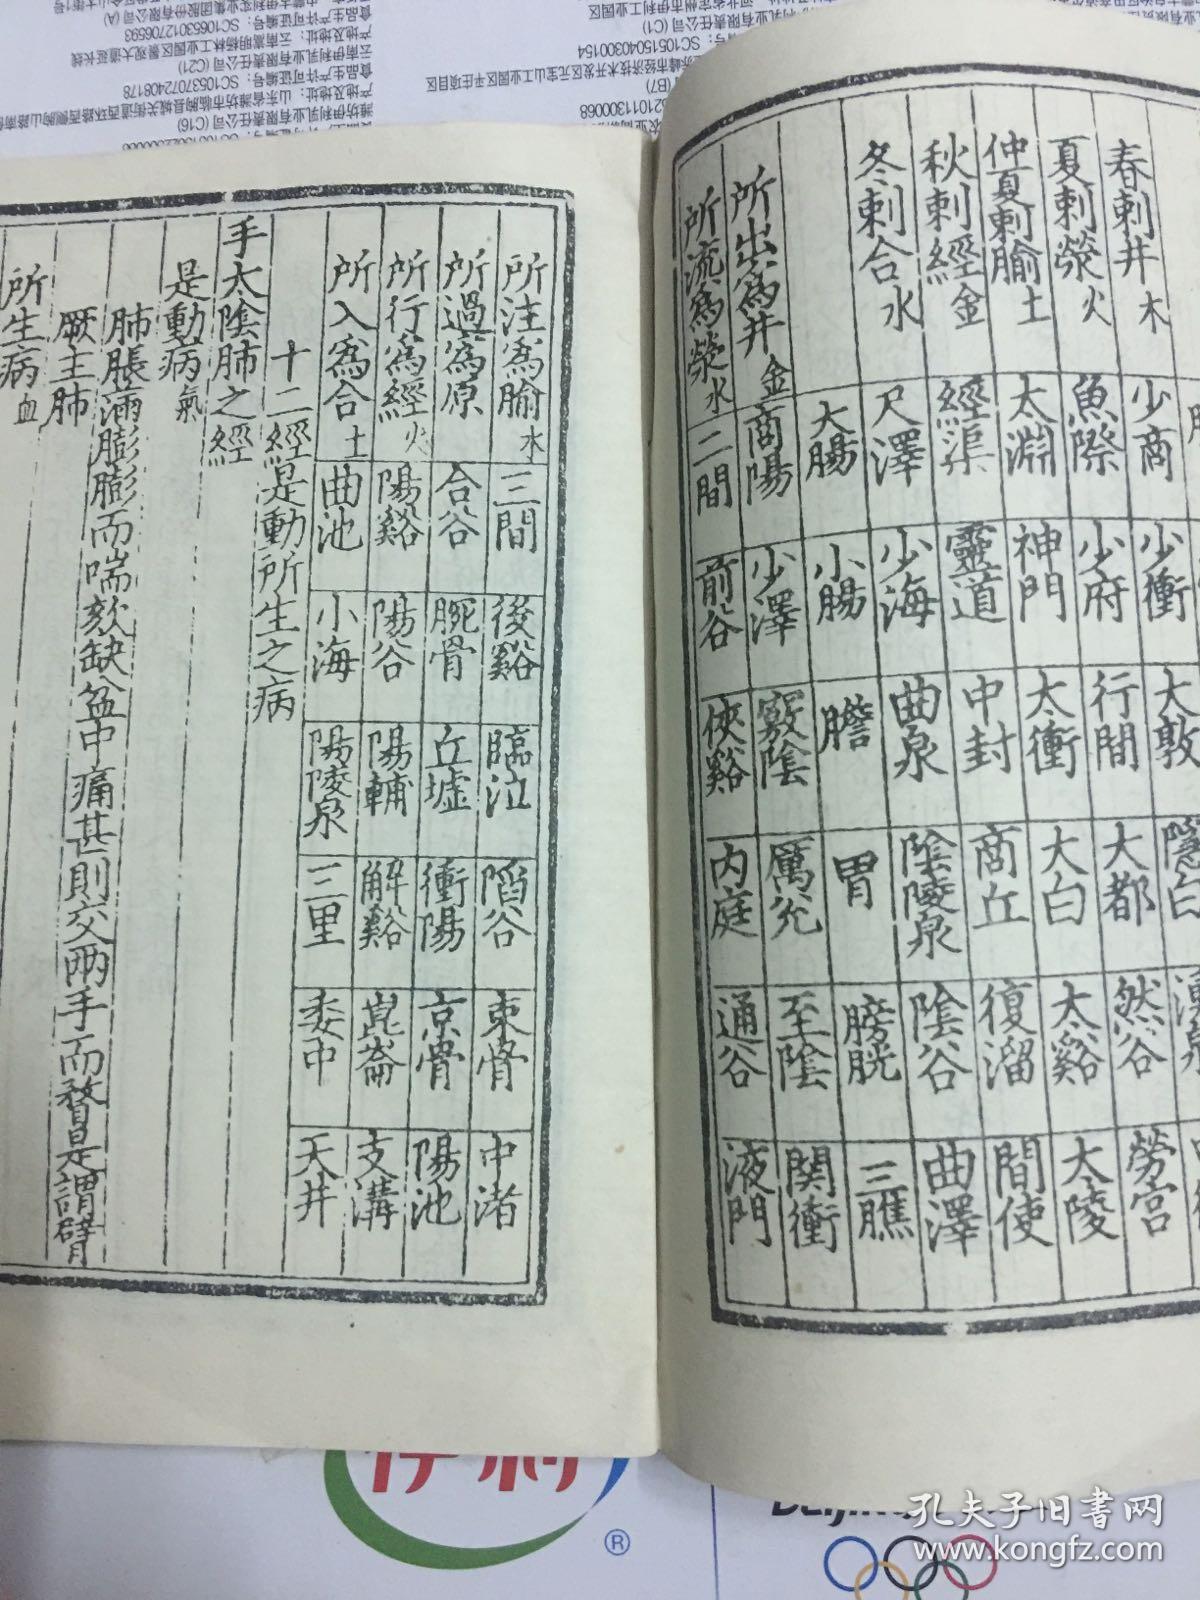 春刺井木 少商 少衝 大敦 隱白
夏刺滎火 魚際 少府 行間 大都 然谷 勞宮
仲夏刺腧土 太淵 神門 太衝 大白 太谿 大陵
秋刺經金 經渠 靈道 中封 商丘 復溜 間使
冬刺合水 尺澤 少海 曲泉 陰陵泉 陰谷 曲澤
大腸 小腸 膽 胃 膀胱 三膲
所出為井金 商陽 少澤 竅陰 厲兌 至陰 関衝
所流為滎水 二間 前谷 俠谿 内庭 通谷 液門
所注為腧水 三間 後谿 臨泣 陷谷 束骨 中渚
所過為原 合谷 腕骨 丘墟 衝陽 京骨 陽池
所行為經火 陽谿 陽谷 陽輔 解谿 崑崙 支溝
所入為合土 曲池 小海 陽陵泉 三里 委中 天井
十二經是動所生之病
手太陰肺之經
是動病氣
肺脹滿膨膨而喘欬缺盆中痛甚則交兩手而瞀是謂臂
厥主肺
所生病血
伊利
®
孔夫子旧书网
www.kongfz.com